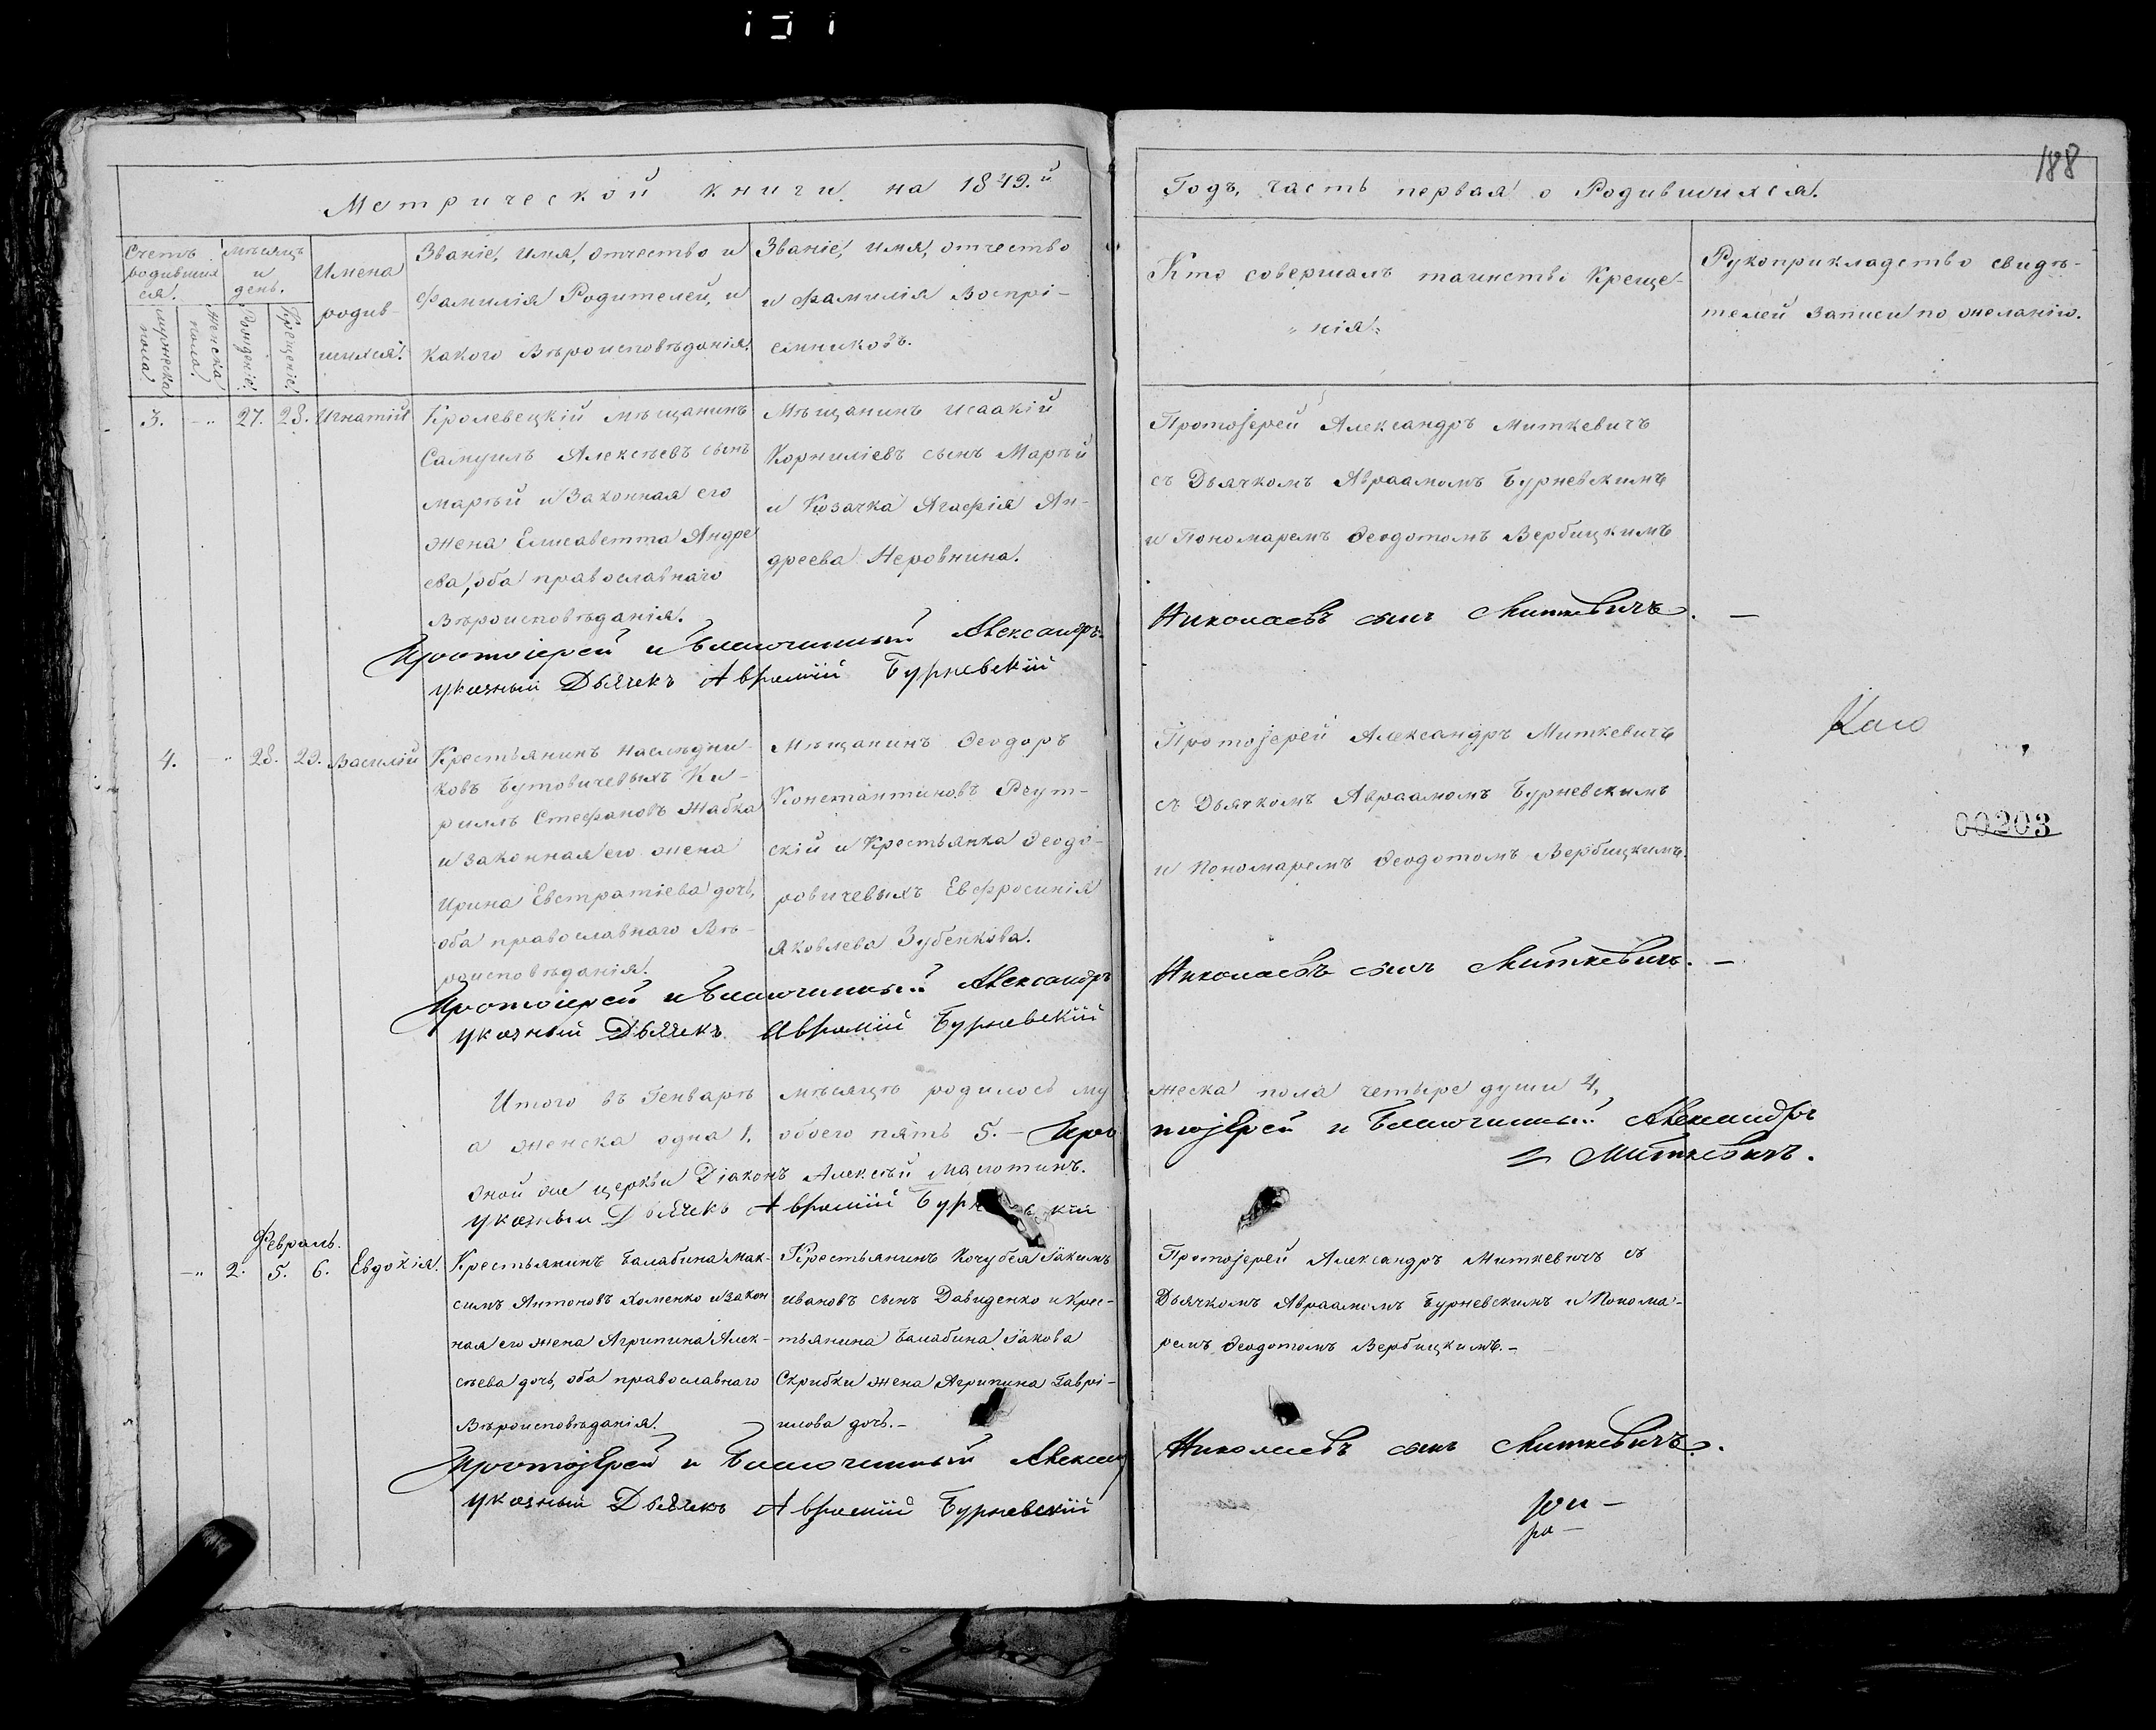 Метрической книги на 1849.й
Годъ, часть первая о Родившихся.
188
Счетъ родившихся.
мужеска пола
женска пола.
Мѣсяцъ и день.
Рожденіе.
Крещеніе.
Имена
родив-
шихся.
Званіе, имя, отчество и
фамилія Родителей, и
какого Вѣроисповѣданія.
Званіе, имя, отчество
и фамилія Воспрі-
емниковъ.
Кто совершалъ таинство Креще-
нія.
Рукоприкладство свидѣ-
телей записи по желанію.
3. -„ 27. 28. Игнатій
Кролевецкій мѣщанинъ
Самуилъ Алексѣевъ сынъ
Марѣй и законная его
жена Елисаветта Андре
ева, оба православнаго
Вѣроисповѣданія.
Мѣщанинъ Исаакій
Корниліевъ сынъ Марѣй
и Козачка Агафія Ан-
дреева Неровнина.
Протоіерей Александръ Миткевичъ
съ Дьячкомъ Авраамомъ Бурневскимъ
и Пономаремъ Ѳеодотомъ Вербицкимъ
Протоіерей и Благочинный Александръ
Николаевъ сынъ Миткевичъ. —
указный Дьячекъ Аврамій Бурневскій
4. -„ 28. 29. Василій
Крестьянинъ наслѣдни-
ковъ Бутовичевыхъ Ки-
риллъ Стефановъ Жабка
и законная его жена
Ирина Евстратіева дочь,
оба православнаго Вѣ-
роисповѣданія.
Мѣщанинъ Ѳеодоръ
Константиновъ Реут-
скій и Крестьянка Ѳеодо-
ровичевыхъ Евфросинія
Яковлева Зубенкова.
Протоіерей Александръ Миткевичъ
съ Дьячкомъ Авраамомъ Бурневскимъ
и Пономаремъ Ѳеодотомъ Вербицкимъ.
00203
Протоіерей и Благочинный Александръ
Николаевъ сынъ Миткевичъ. —
указный Дьячекъ Аврамій Бурневскій
Итого въ Генварѣ мѣсяцѣ родилось му
жеска пола четыре души 4,
а женска одна 1. обоего пять 5. — Про
тоіерей и Благочинный Александръ
Миткевичъ.
оной же церкви Діаконъ Алексѣй Малютинъ.
указный Дьячекъ Аврамій Бурневскій
Февраль.
-„ 2. 5. 6. Евдокія.
Крестьянинъ Балабина Мак-
симъ Антоновъ Хоменко и закон
ная его жена Агрипина Алек-
сѣева дочь, оба православнаго
Вѣроисповѣданія.
Крестьянинъ Кочубея Іакимъ
Ивановъ сынъ Давиденко и Крес-
тьянина Балабина Іакова
Скрибки жена Агрипина Гаврі-
илова дочь.-
Протоіерей Александръ Миткевичъ съ
Дьячкомъ Авраамомъ Бурневскимъ и Понома-
ремъ Ѳеодотомъ Вербицкимъ.-
Протоіерей и Благочинный Алексан
Николаевъ сынъ Миткевичъ.
указный Дьячекъ Аврамій Бурневскій